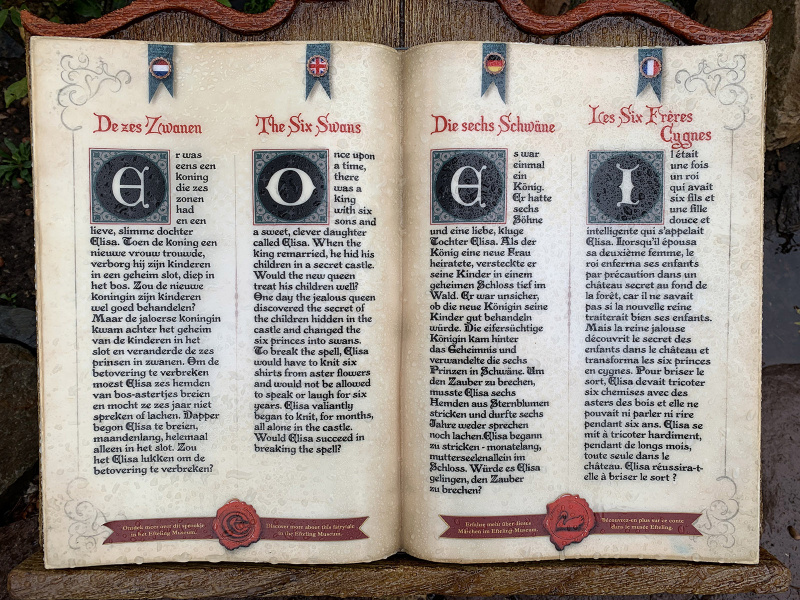 De zes Zwanen
Er was
eens een
koning
die zes
zonen
had
en een
lieve, slimme dochter
Elisa. Toen de koning een
nieuwe vrouw trouwde,
verborg hij zijn kinderen
in een geheim slot, diep in
het bos. Zou de nieuwe
koningin zijn kinderen
wel goed behandelen?
Maar de jaloerse koningin
kwam achter het geheim
van de kinderen in het
slot en veranderde de zes
prinsen in zwanen. Om de
betovering te verbreken
moest Elisa zes hemden
van bos-astertjes breien
en mocht ze zes jaar niet
spreken of lachen. Dapper
begon Elisa te breien,
maandenlang, helemaal
alleen in het slot. Zou
het Elisa lukken om de
betovering te verbreken?
Ontdek meer over dit sprookje
in het Efteling Museum.
The Six Swans
Once upon
a time,
there
was a
king
with six
sons and
a sweet, clever daughter
called Elisa. When the
king remarried, he hid his
children in a secret castle.
Would the new queen
treat his children well?
One day the jealous queen
discovered the secret of
the children hidden in the
castle and changed the
six princes into swans.
To break the spell, Elisa
would have to knit six
shirts from aster flowers
and would not be allowed
to speak or laugh for six
years. Elisa valiantly
began to knit, for months,
all alone in the castle.
Would Elisa succeed in
breaking the spell?
Discover more about this fairytale
in the Efteling Museum.
Die sechs Schwäne
Es war
einmal
ein
König.
Er hatte
sechs
Söhne
und eine liebe, kluge
Tochter Elisa. Als der
König eine neue Frau
heiratete, versteckte er
seine Kinder in einem
geheimen Schloss tief im
Wald. Er war unsicher,
ob die neue Königin seine
Kinder gut behandeln
würde. Die eifersüchtige
Königin kam hinter
das Geheimnis und
verwandelte die sechs
Prinzen in Schwäne. Um
den Zauber zu brechen,
musste Elisa sechs
Hemden aus Sternblumen
stricken und durfte sechs
Jahre weder sprechen
noch lachen.Elisa begann
zu stricken - monatelang,
mutterseelenallein im
Schloss. Würde es Elisa
gelingen, den Zauber
zu brechen?
Erfahre mehr über dieses
Märchen im Efteling Museum.
Les Six Frères
Cygnes
Il était
une fois
un roi
qui avait
six fils et
une fille
douce et
intelligente qui s'appelait
Elisa. Lorsqu'il épousa
sa deuxième femme, le
roi enferma ses enfants
par précaution dans un
château secret au fond de
la forêt, car il ne savait
pas si la nouvelle reine
traiterait bien ses enfants.
Mais la reine jalouse
découvrit le secret des
enfants dans le château et
transforma les six princes
en cygnes. Pour briser le
sort, Elisa devait tricoter
six chemises avec des
asters des bois et elle ne
pouvait ni parler ni rire
pendant six ans. Elisa se
mit à tricoter hardiment,
pendant de longs mois,
toute seule dans le
château. Elisa réussira-t-
elle à briser le sort ?
Découvrez-en plus sur ce conte
dans le musée Efteling.